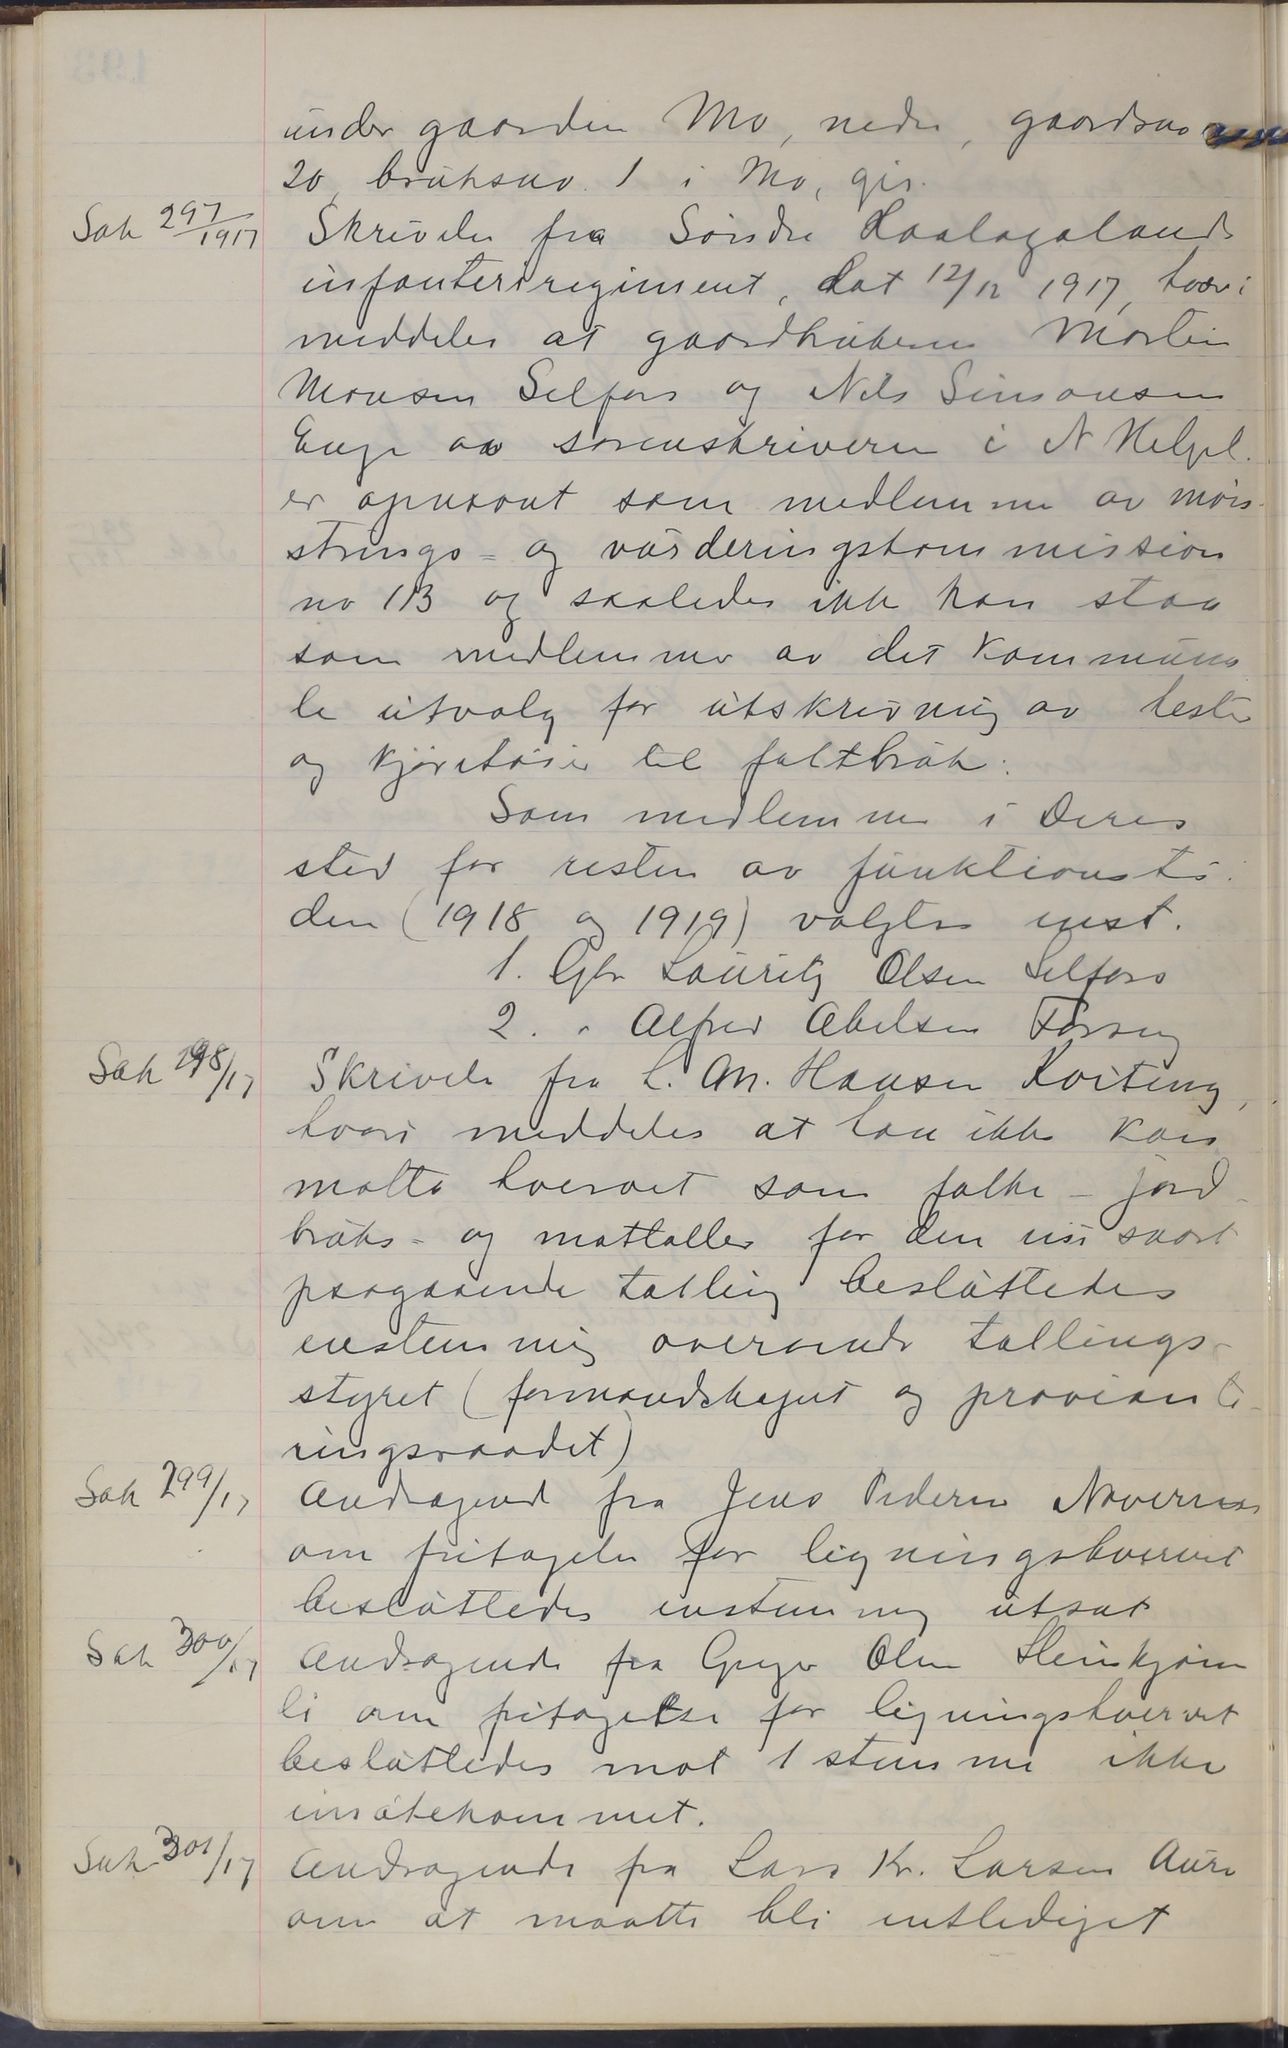 under gaarden Mo, nedre, gaardsno
20, bruksno. 1 i Mo, gis.
Sak 297/1917 Skrivelse fra Søndre Haalogalands
infanteriregiment, dat 12/12 1917, hvori
meddeles at gaardbrukerne Morten
Monsen Selfors og Nils Simonsen
Enge av sorenskriveren i N Helgel.
er opnævnt som medlemmer av møn-
strings- og vurderingskommission
no 113 og saaledes ikke kan staa
som medlemmer av det kommuna
le utvalg for utskrivning av heste
og kjøretøier til feltbruk.
Som medlemmer i deres
sted for resten av funktionsti-
den (1918 og 1919) valgtes enst.
1. Gbr Lauritz Olsen Selfors
2. " Alfred Abelsen
Sak 298/17 Skrivelse fra L. M. Hansen Kviting,
hvori meddeles at han ikke kan
motta hvervet som folke- jord-
bruks- og mattæller for den nu snart
paagaaende tælling besluttedes
enstemmig oversendt tællings-
styret (formandskapet og proviante-
ringsraadet)
Sak 299/17 Andragende fra Jens Pedersen Nævernes
om fritagelse for ligningshvervet
besluttedes enstemmig utsat
Sak 300/17 Andragende fra Greger Olsen Steinkjøn
li om fritagelse for ligningshvervet
besluttedes mot 1 stemme ikke
imøtekommet.
Sak 301/17 Andragende fra Lars Kr. Larsen Aure
om at maatte bli entlediget